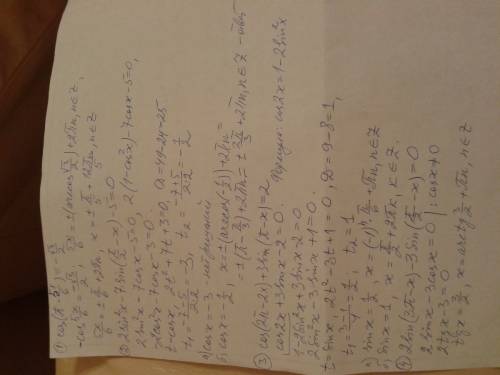 -cos 5x/6 = -√3/2, 5x/6 = ±(arccos √3/2) + 2πn, n∈Z,
5x/6 = ± π/6 + 2πn, x = ± π/5 + 12πn/5, n∈Z
② 2sin²x + 7sin(π/2 - x) - 5 = 0
2sin²x - 7cosx - 5 = 0, 2(1-cos²x) - 7cosx - 5 = 0,
-2cos²x - 7cosx - 3 = 0
t = cosx, 2t² + 7t + 3 = 0, D = 49 - 24 = 25
t₁ = (-7-5)/(2·2) = -3, t₂ = (-7+5)/(2·2) = -1/2
а) cosx = -3 нет решений
б) cosx = -1/2, x = ±(arccos(-1/2)) + 2πn =
= ±(π - π/3) + 2πn = ± 2π/3 + 2πn, n∈Z - ответ
③ cos(2π-2x) + 3sin(π-x) = 2
cos2x + 3sinx - 2 = 0. Формула: cos2x = 1 - 2sin²x
1 - 2sin²x + 3sinx - 2 = 0
2sin²x - 3sinx + 1 = 0
t = sinx 2t² - 3t + 1 = 0, D = 9 - 8 = 1,
t₁ = (3-1)/4 = 1/2, t₂ = 1
а) sinx = 1/2, x = (-1)ⁿ π/6 + πn, n∈Z
б) sinx = 1, x = π/2 + 2πk, k∈Z.
④ 2sin(3π-x) - 3sin(π/2 - x) = 0
2sinx - 3cosx = 0 | : cosx ≠ 0
2tgx - 3 = 0
tgx = 3/2, x = arctg 3/2 + πn, n∈Z